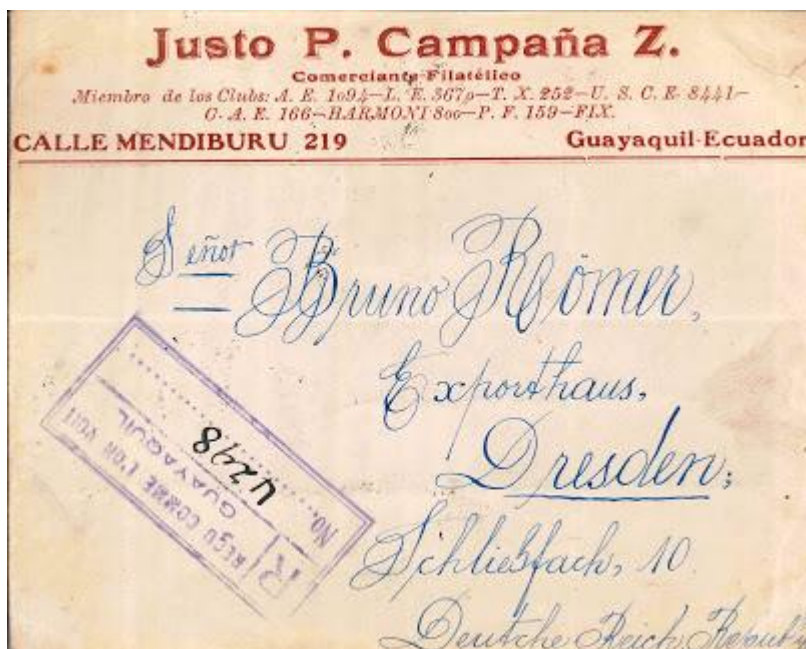 Justo P. Campaña Z.
Comerciante Filatélico
Miembro de los Clubs: A. E. 1094—L. E. 3670—T. X. 252—U. S. C. E. 8441—
C. A. E. 166—HARMONI 800—P. F. 159—FIX.
CALLE MENDIBURU 219 Guayaquil-Ecuador
Señor Bruno Römer,
Exporthaus,
Dresden;
Schließfach, 10
Deutche Reich,
R
REÇU COMME L'ON VOIT
GUAYAQUIL
No. 4298